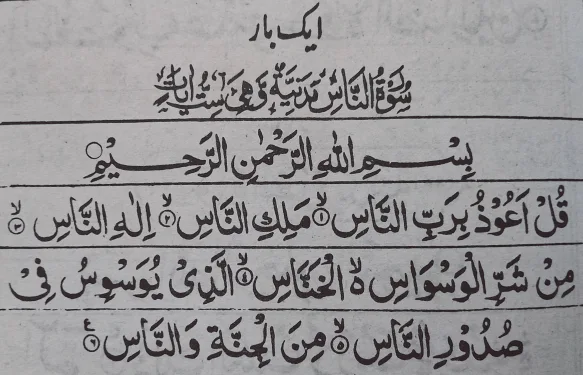 ایک بار
سُوْرَةُ النَّاسِ مَدَنِيَّةٌ وَّهِيَ سِتُّ اٰيَاتٍ
بِسْمِ اللهِ الرَّحْمٰنِ الرَّحِيْمِ ○
قُلْ اَعُوْذُ بِرَبِّ النَّاسِ ۙ﴿۱﴾ مَلِكِ النَّاسِ ۙ﴿۲﴾ اِلٰهِ النَّاسِ ۙ﴿۳﴾
مِنْ شَرِّ الْوَسْوَاسِ ۙ۬ الْخَنَّاسِ ۙ﴿۴﴾ الَّذِيْ يُوَسْوِسُ فِيْ
صُدُوْرِ النَّاسِ ۙ﴿۵﴾ مِنَ الْجِنَّةِ وَالنَّاسِ ﴿۶﴾